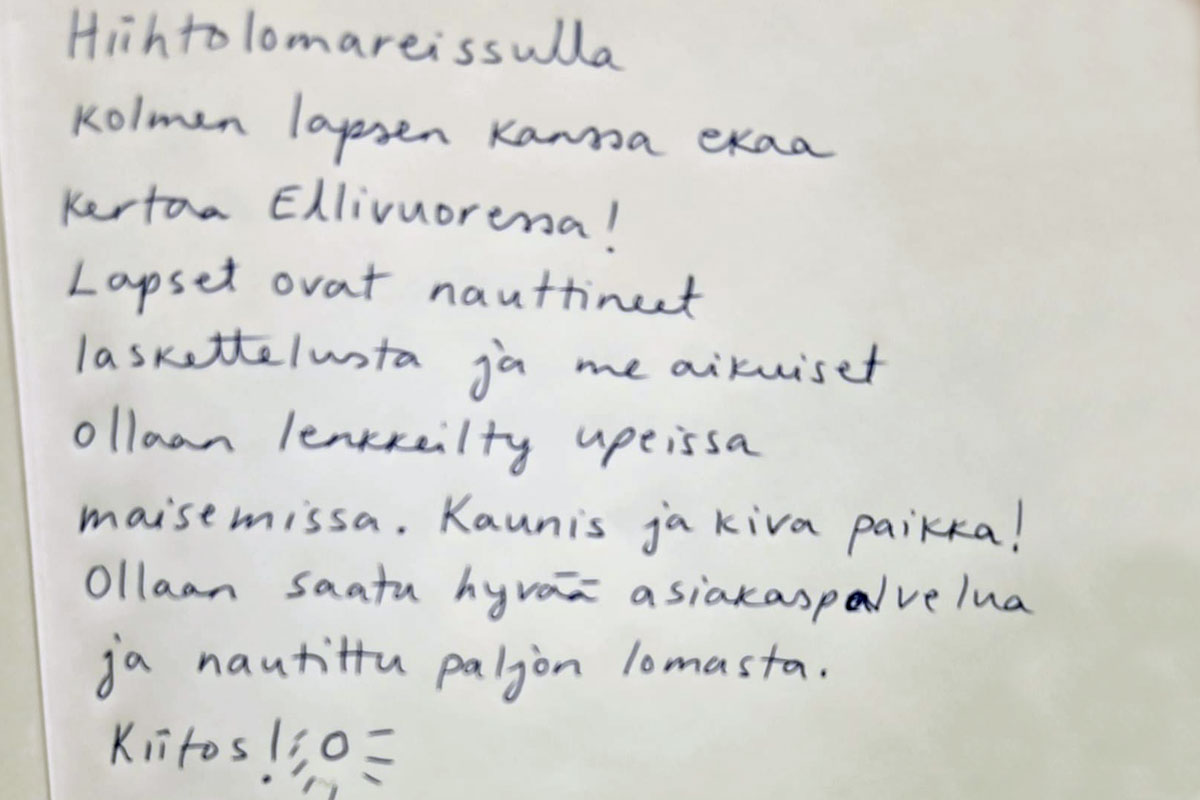 Hiihtolomareissulla
kolmen lapsen kanssa ekaa
kertaa Ellivuoressa!
Lapset ovat nauttineet
laskettelusta ja me aikuiset
ollaan lenkkeilty upeissa
maisemissa. Kaunis ja kiva paikka!
Ollaan saatu hyvää asiakaspalvelua
ja nautittu paljon lomasta.
Kiitos!